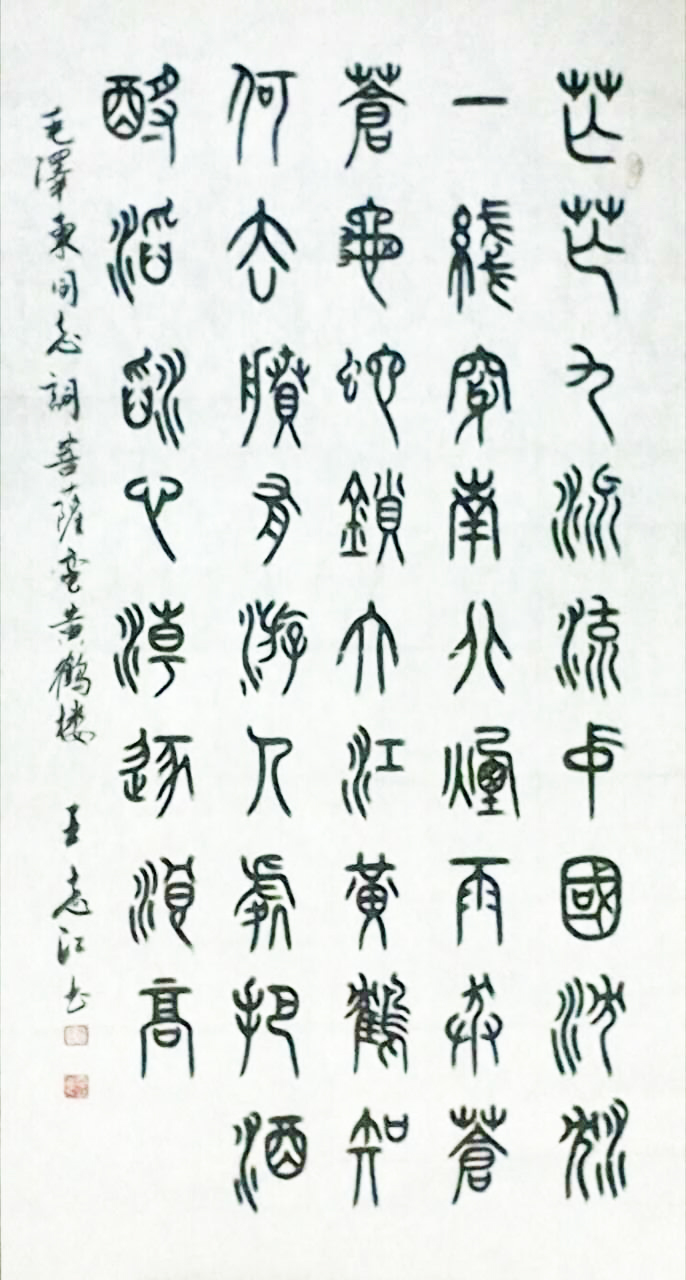 芒芒九派流中國沈沈
一綫穿南北煙雨莽蒼
蒼龜蛇鎖大江黃鶴知
何去賸有游人處把酒
酹滔滔心潮逐浪高
毛澤東同志詞菩薩蛮黄鹤楼 王志江书